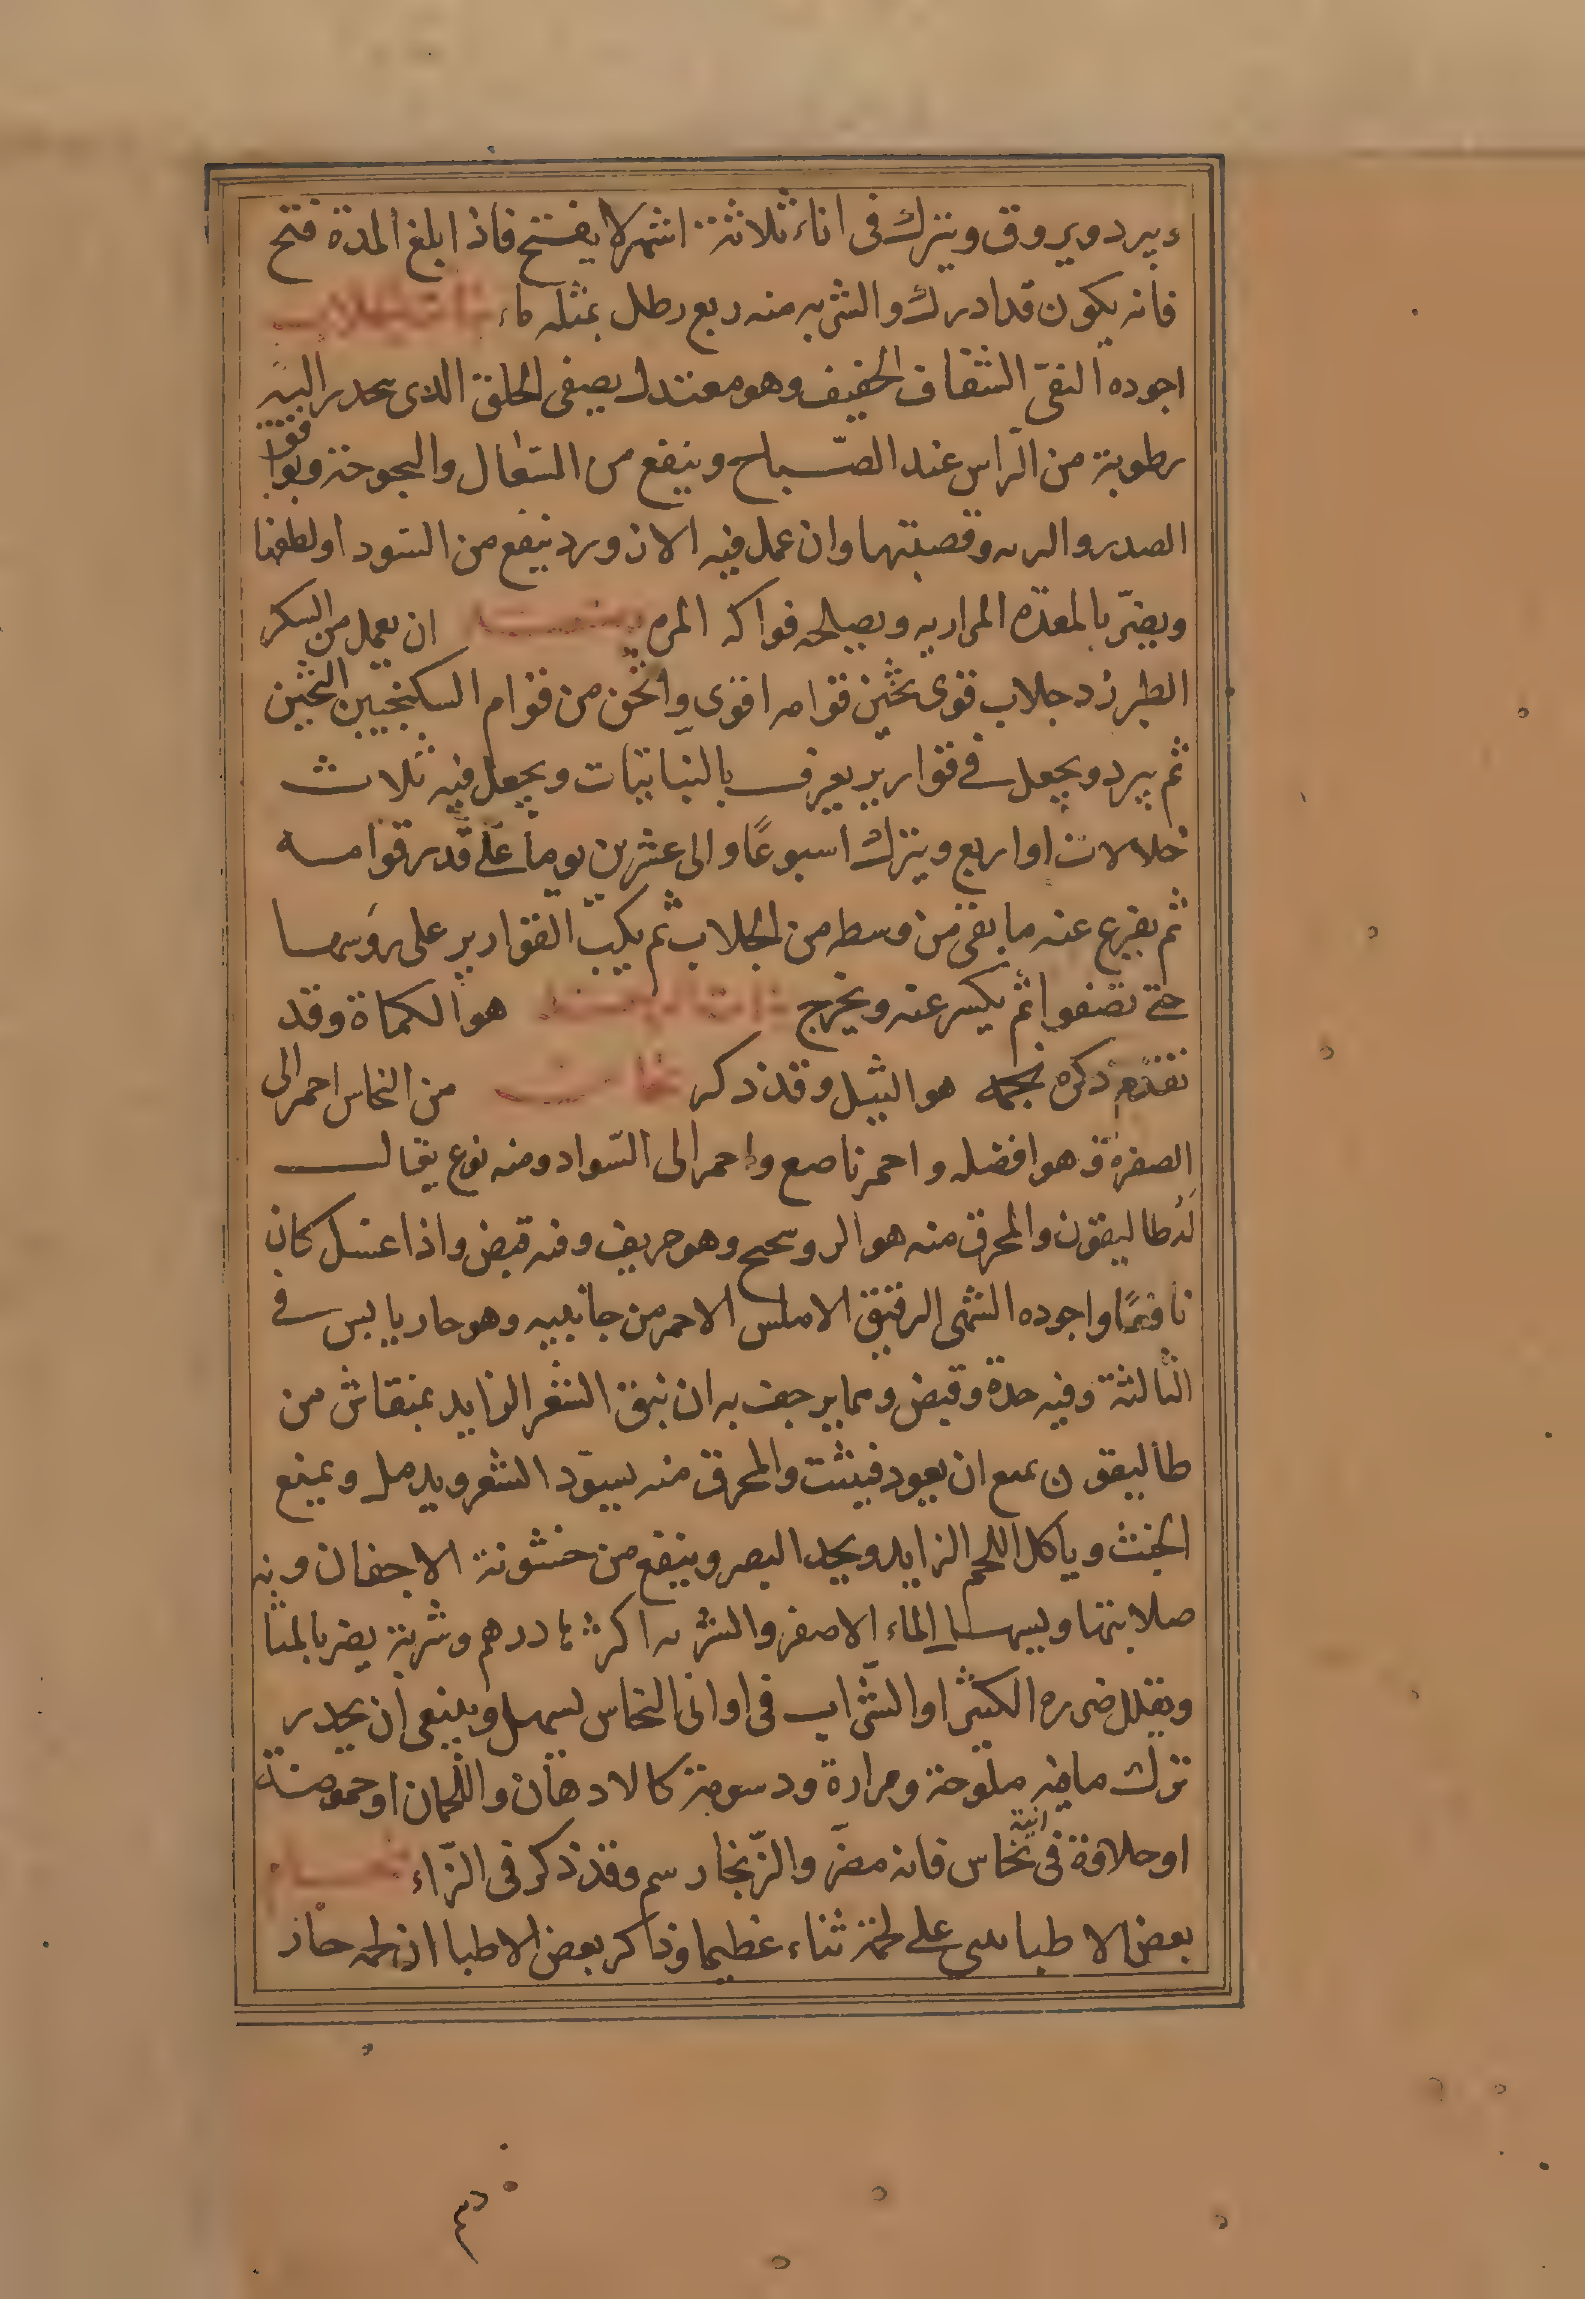 ء يبرد ويروق ويترك فى اناء ثلاثة اشهر لا يفتح فاذا بلغ المدة فتح
فانه يكون قد ادرك والشربه منه ربع رطل بمثله ماء
اجوده النقى الشفاف الخفيف وهو معتدل يصفى الحلق الذى ينحدر اليه
رطوبة من الراس عند الصّباح وينفع من السّعال والبحوحة ويوافق
الصدر والريه وقصبتها وان عمل فيه الازورد ينفع من السّودا ولطفها
ويضرّ بالمعدة المراريه ويصلحه فواكه المره ان يعمل من السكر
الطبرزد جلاب قوى ثخين قوامه اقوى واثخن من قوام السكنجبين الثخين
ثم يبرد ويجعل فى قوارير يعرف بالنباتيات ويجعل فيه ثلاث
خلالات او اربع ويترك اسبوعًا والى عشرين يوما على قدر قوامه
ثم يفرغ عنه ما بقى من وسطه من الجلاب ثم يكبّ القوارير على روسها
حتى تصفوا ثم يكسر عنه ويخرج نبات الرعد هو الكماة وقد
تقدم ذكره نجمه هو الثيل وقد ذكر نحاس من النحاس احمر الى
الصفرة وهو افضله واحمر ناصع واحمر الى السّواد ومنه نوع يقال
له طاليقون والمحرق منه هو الروسختج وهو حريف وفيه قبض واذا غسل كان
نافعًا واجوده الشمى الرقيق الاملس الاحمر من جانبيه وهو حار يابس فى
الثالثة وفيه حدة وقبض ومما يرجف به ان نتف الشعر الزايد بمنقاش من
طاليقون يمنع ان يعود فينبت والمحرق منه يسوّد الشعر ويدمل ويمنع
الخبث وياكل اللحم الزايد ويحد البصر وينفع من خشونة الاجفان وبه
صلابتها ويسهل الماء الاصفر والشربه اكثر درهم وشربة يضر بالمثا
ويقلل ضرره الكثيرا والشّراب فى اوانى النحاس يسهل وينبغى ان يحدر
ترك ما فيه ملوحة ومرارة ودسومة كالادهان واللحمان او حموضة
او حلاوة فى انية نحاس فانه مضرّ والزّنجار سم وقد ذكر فى الزّاء نعام
بعض الاطبا يثنى على لحمة ثناء عظيما وذاكر بعض الاطبا ان لحمه حار